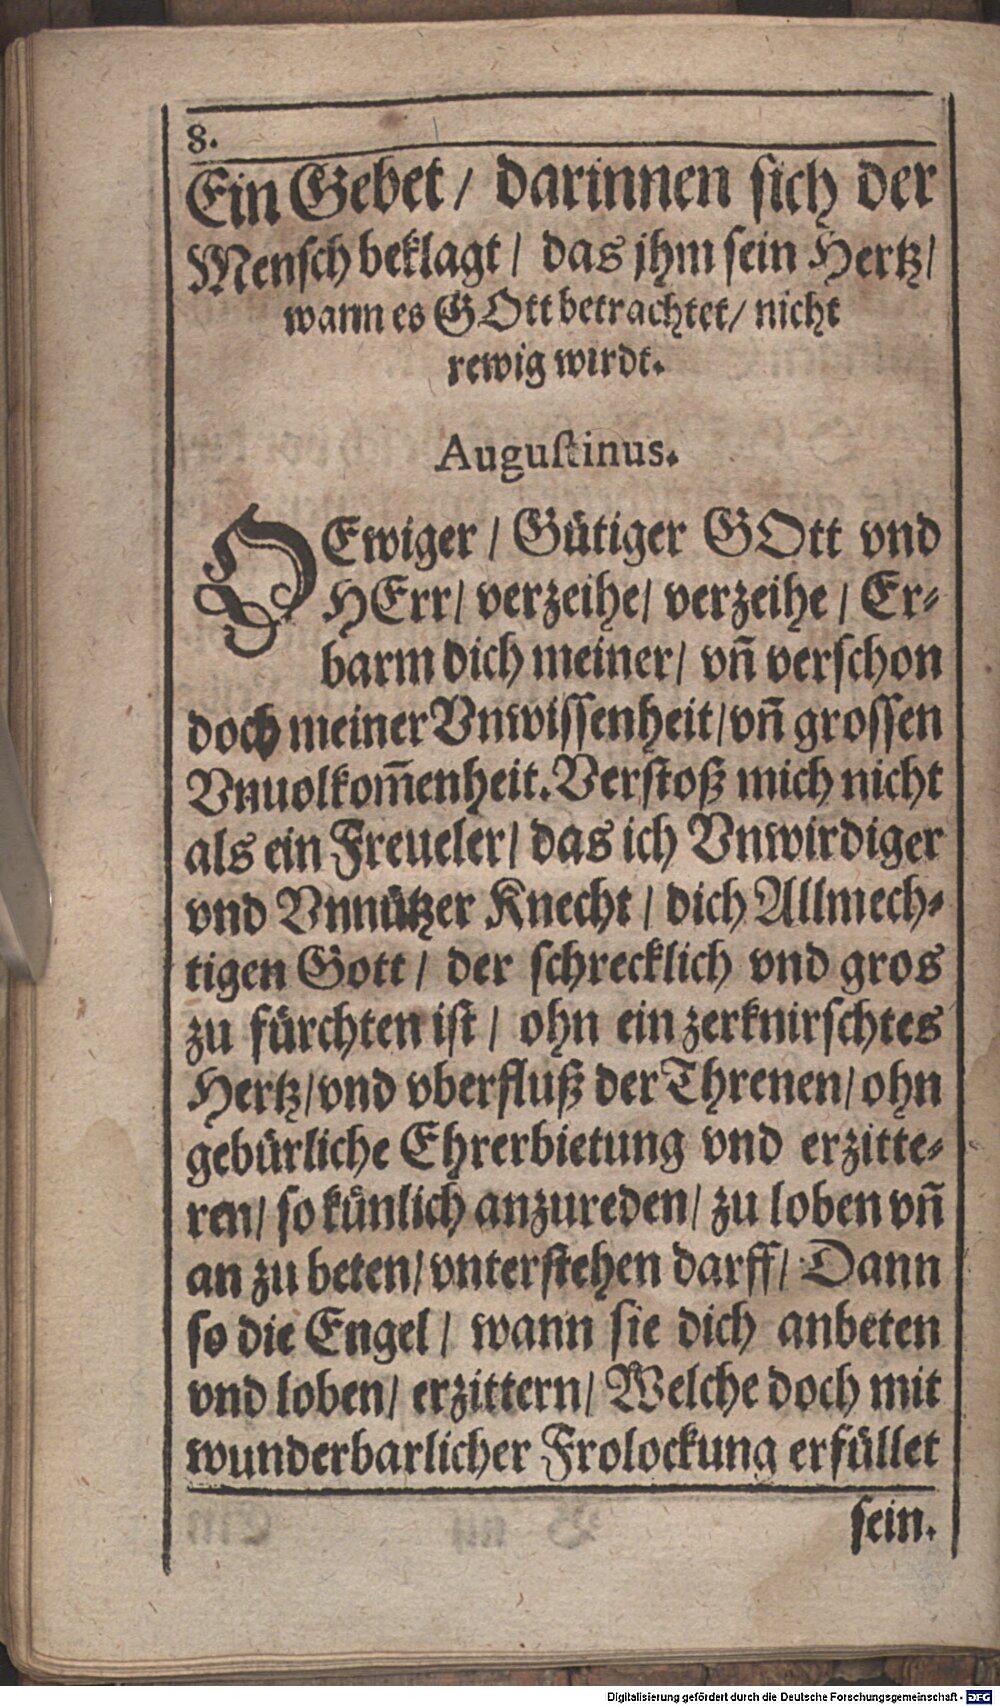 8.
Ein Gebet / darinnen sich der
Mensch beklagt / das jhm sein Hertz /
wann es GOtt betrachtet / nicht
rewig wirdt.
Augustinus.
O Ewiger / Gütiger GOtt vnd
HErr / verzeihe / verzeihe / Er-
barm dich meiner / vñ verschon
doch meiner Vnwissenheit / vñ grossen
Vnuolkom̃enheit. Verstoß mich nicht
als ein Freueler / das ich Vnwirdiger
vnd Vnnützer Knecht / dich Allmech-
tigen Gott / der schrecklich vnd gros
zu fürchten ist / ohn ein zerknirschtes
Hertz / vnd vberfluß der Threnen / ohn
gebürliche Ehrerbietung vnd erzitte-
ren / so künlich anzureden / zu loben vñ
an zu beten / vnterstehen darff / Dann
so die Engel / wann sie dich anbeten
vnd loben / erzittern / Welche doch mit
wunderbarlicher Frolockung erfüllet
sein.
Digitalisierung gefördert durch die Deutsche Forschungsgemeinschaft - DFG